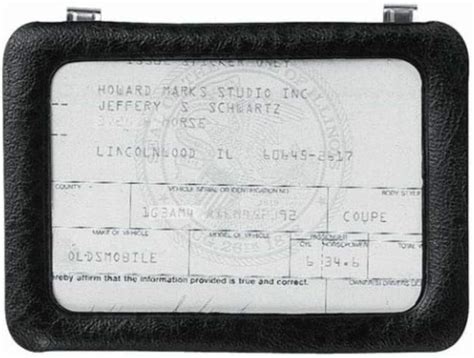 ISSUE STICKER ONLY
HOWARD MARKS STUDIO INC
JEFFERY S SCHWARTZ
MORSE
LINCOLNWOOD IL 60645-2617
COUNTY VEHICLE SERIAL OR IDENTIFICATION NO. BODY STYLE
COUPE
MAKE OF VEHICLE MODEL OF VEHICLE PASSENGER
CYL HORSEPOWER TOTAL
OLDSMOBILE 6 34.6
ereby affirm that the information provided is true and correct. OWNER'S DRIVERS